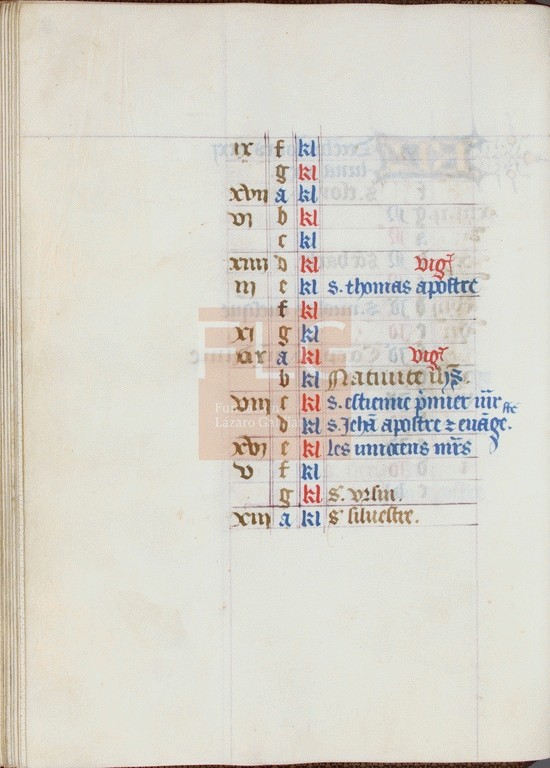 ix f kl
g kl
xvii a kl
vi b kl
c kl
xiiii d kl vigͥ
iii e kl s. thomas apostre
f kl
xi g kl
xix a kl vigͥ
b kl Natiuite ih̄s.
viii c kl s. estienne p̄mier
d kl s. Jehā apostre ⁊ euāge.
xvi e kl les innocens mr̄s
v f kl
g kl s. vrsin.
xiii a kl s siluestre.
FLG
Fundación
Lázaro Galdiano